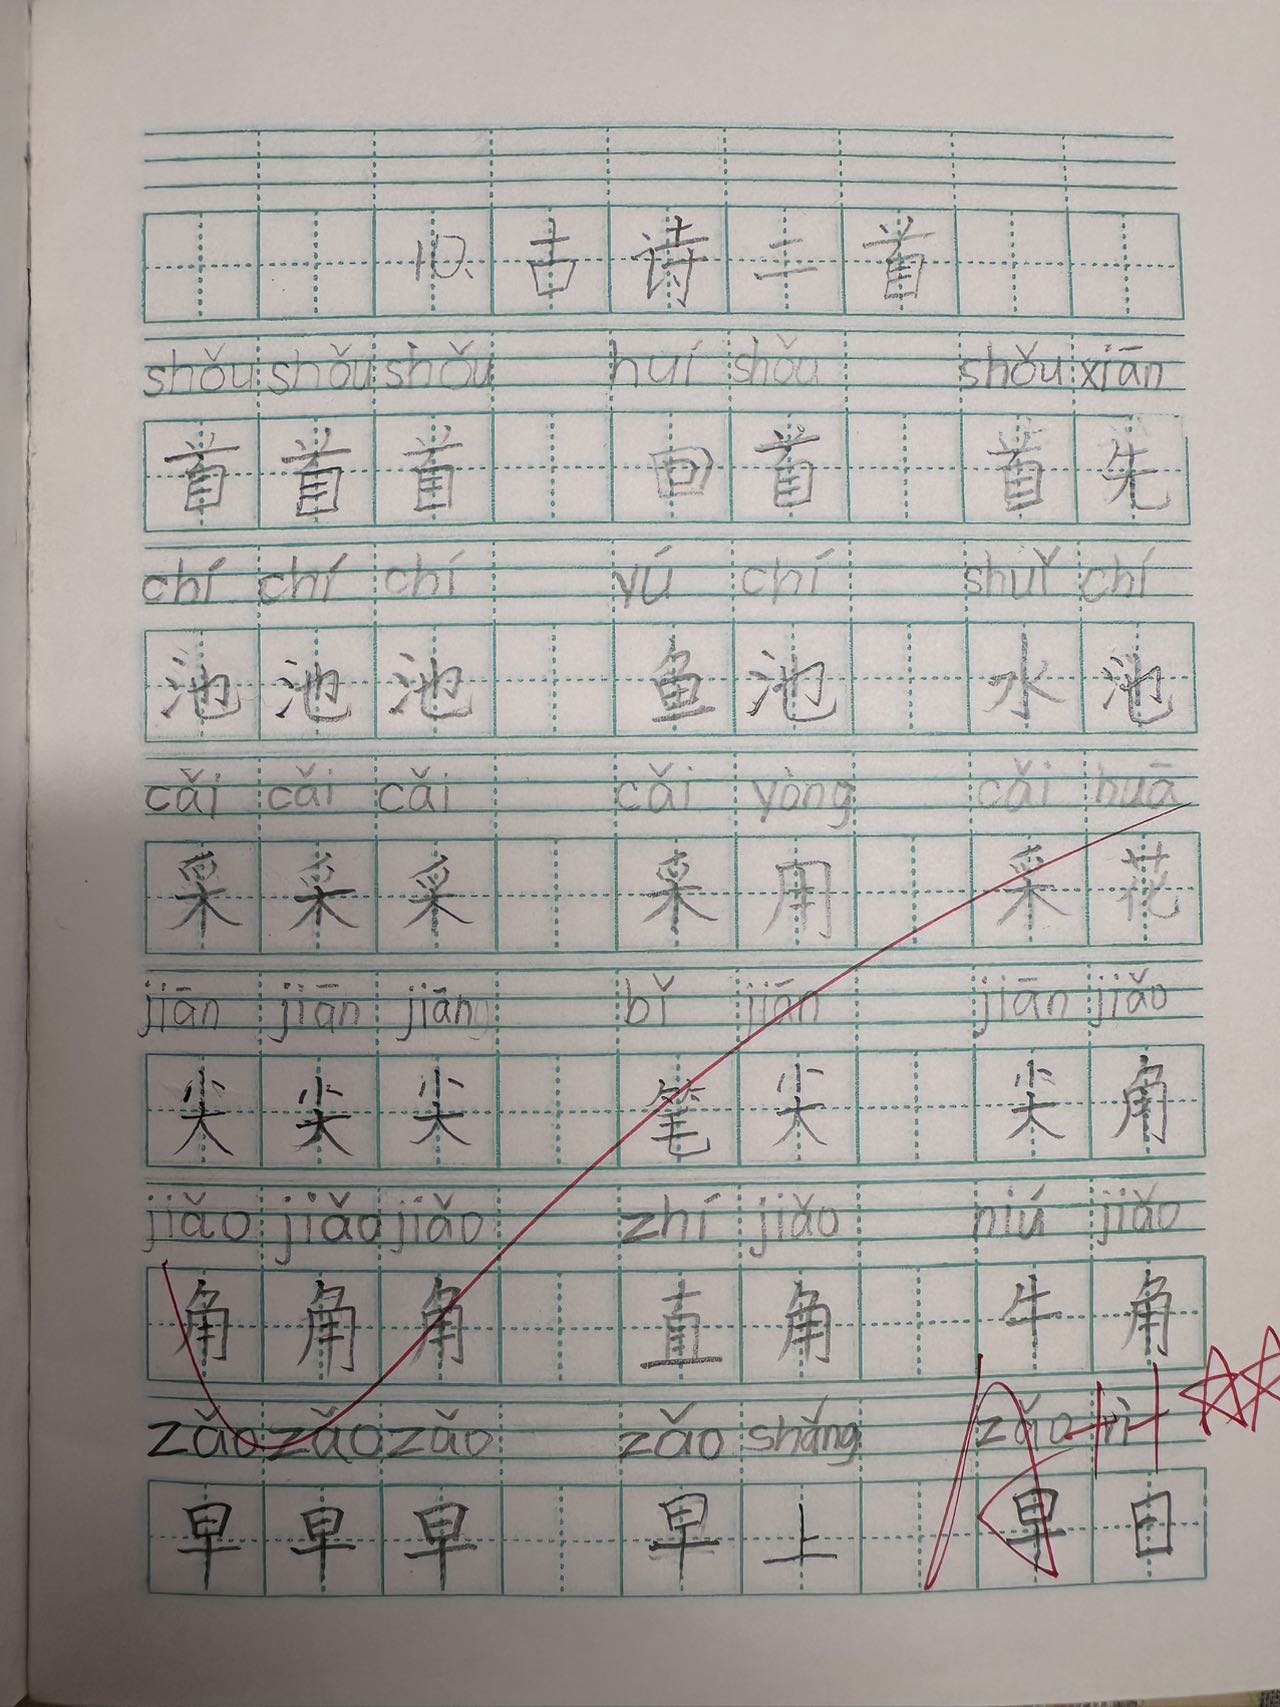 10. 古诗二首
shǒu shǒu shǒu huí shǒu shǒu xiān
首 首 首 回 首 首 先
chí chí chí yú chí shuǐ chí
池 池 池 鱼 池 水 池
cǎi cǎi cǎi cǎi yòng cǎi huā
采 采 采 采 用 采 花
jiān jiān jiān bǐ jiān jiān jiǎo
尖 尖 尖 笔 尖 尖 角
jiǎo jiǎo jiǎo zhí jiǎo niú jiǎo
角 角 角 直 角 牛 角
zǎo zǎo zǎo zǎo shǎng zǎo rì
早 早 早 早 上 早 日
A++